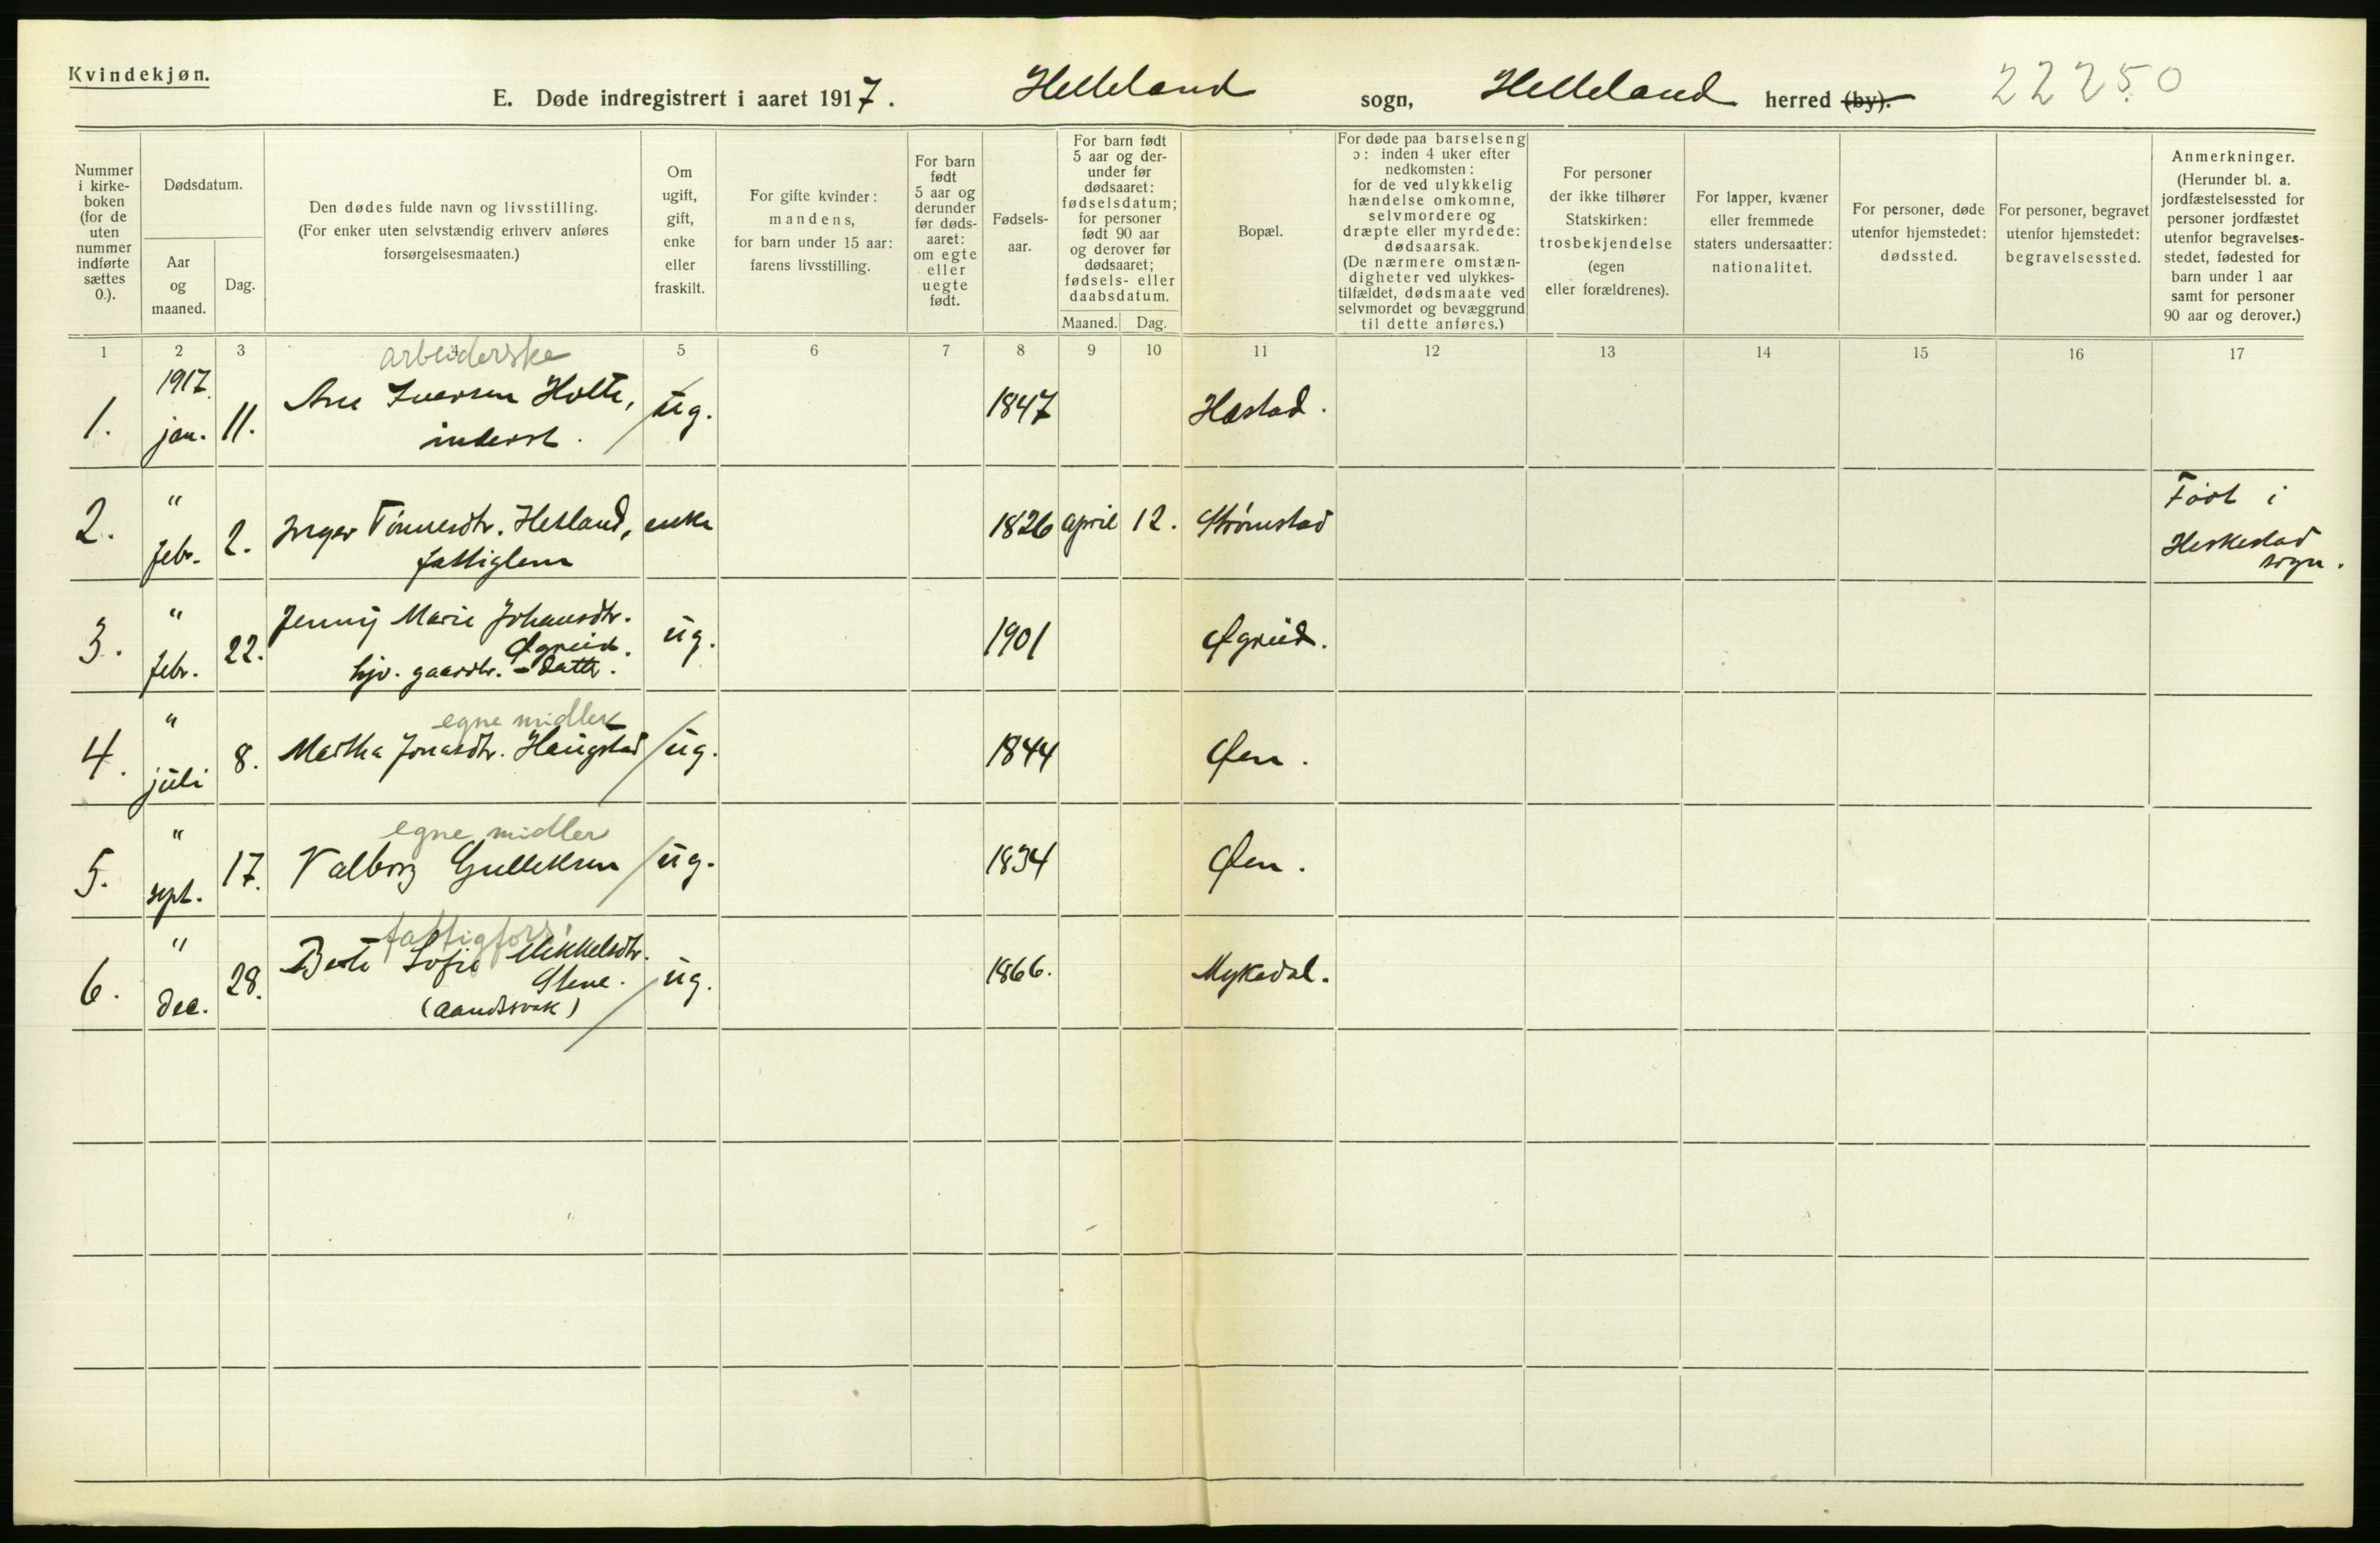 Kvindekjøn.
E. Døde indregistrert i aaret 1917. Helleland sogn, Helleland herred (by). 22250
Nummer i kirke- boken (for de uten nummer indførte sættes 0.).
Dødsdatum.
Aar og maaned.
Dag.
Den dødes fulde navn og livsstilling. (For enker uten selvstændig erhverv anføres forsørgelsesmaaten.)
Om ugift, gift, enke eller fraskilt.
For gifte kvinder: mandens, for barn under 15 aar: farens livsstilling.
For barn født 5 aar og derunder før døds- aaret: om egte eller uegte født.
Fødsels- aar.
For barn født 5 aar og der- under før dødsaaret: fødselsdatum; for personer født 90 aar og derover før dødsaaret; fødsels- eller daabsdatum.
Maaned. Dag.
Bopæl.
For døde paa barselseng ɔ: inden 4 uker efter nedkomsten: for de ved ulykkelig hændelse omkomne, selvmordere og dræpte eller myrdede: dødsaarsak. (De nærmere omstæn- digheter ved ulykkes- tilfældet, dødsmaate ved selvmordet og bevæggrund til dette anføres.)
For personer der ikke tilhører Statskirken: trosbekjendelse (egen eller forældrenes).
For lapper, kvæner eller fremmede staters undersaatter: nationalitet.
For personer, døde utenfor hjemstedet: dødssted.
For personer, begravet utenfor hjemstedet: begravelsessted.
Anmerkninger. (Herunder bl. a. jordfæstelsessted for personer jordfæstet utenfor begravelses- stedet, fødested for barn under 1 aar samt for personer 90 aar og derover.)
1 2 3 4 5 6 7 8 9 10 11 12 13 14 15 16 17
arbeiderske
1. 1917 jan. 11. Ane Iversen Holte, inderst. ug. 1847 Hæstad.
2. " febr. 2. Inger Tønnesdtr. Hetland, fattiglem enke 1826 april 12. Strømstad Født i Heskestad sogn.
3. " febr. 22. Jenny Marie Johansdtr. Øgreid. hjv. gaardbr. - datter. ug. 1901 Øgreid.
egne midler
4. " juli 8. Martha Jonasdtr. Haugstad ug. 1844 Øen.
egne midler
5. " sept. 17. Valborg Gulleksen ug. 1834 Øen.
fattigfors.
6. " dec. 28. Berte Sofie Mikkelsdtr. Stene. (aandssvak) ug. 1866. Mykedal.